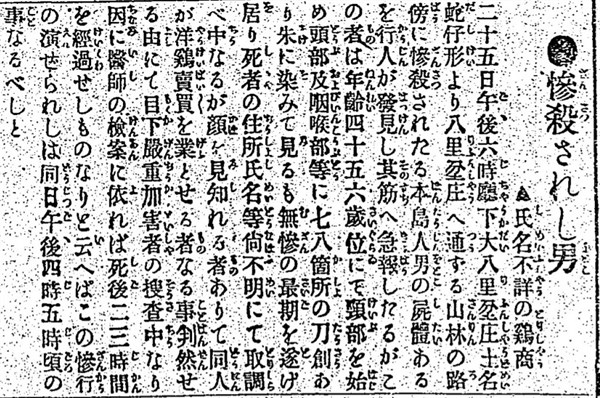 ●慘殺されし男
▲氏名不詳の鷄商
二十五日午後六時廳下大八里坌庄土名
蛇仔形より八里坌庄へ通する山林の路
傍に慘殺されたる本島人男の屍體ある
を行人が發見し其筋へ急報したるがこ
の者は年齡四十五六歲位にて頸部を始
め頭部及咽喉部等に七八箇所の刀創あ
り朱に染みて見るも無慘の最期を遂げ
居り死者の住所氏名等尙不明にて取調
べ中なるが顏を見知れる者ありて同人
が洋鷄賣買を業とせる者なる事判然せ
る由にて目下嚴重加害者の搜查中なり
因に醫師の檢案に依れば死後二三時間
を經過せしものなりと云へばこの慘行
の演ぜられしは同日午後四時五時頃の
事なるべしと